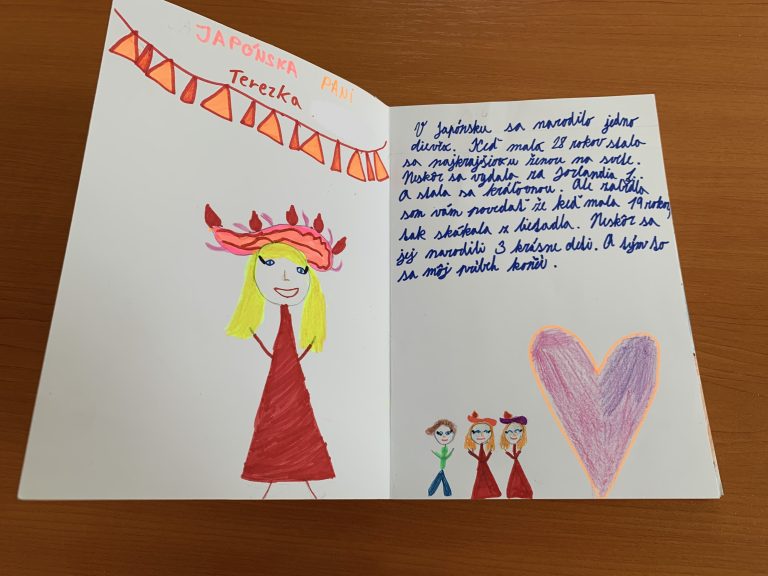 JAPÓNSKA PANI
Terezka
V Japónsku sa narodilo jedno
dievča. Keď mala 28 rokov stala
sa najkrajšiou ženou na svete.
Neskôr sa vydala za Jorlandia 1.
A stala sa kráľovnou. Ale zabudla
som vám povedať že keď mala 19 rokov,
tak skákala z lietadla. Neskôr sa
jej narodili 3 krásne deti. A týmto
sa môj príbeh končí.